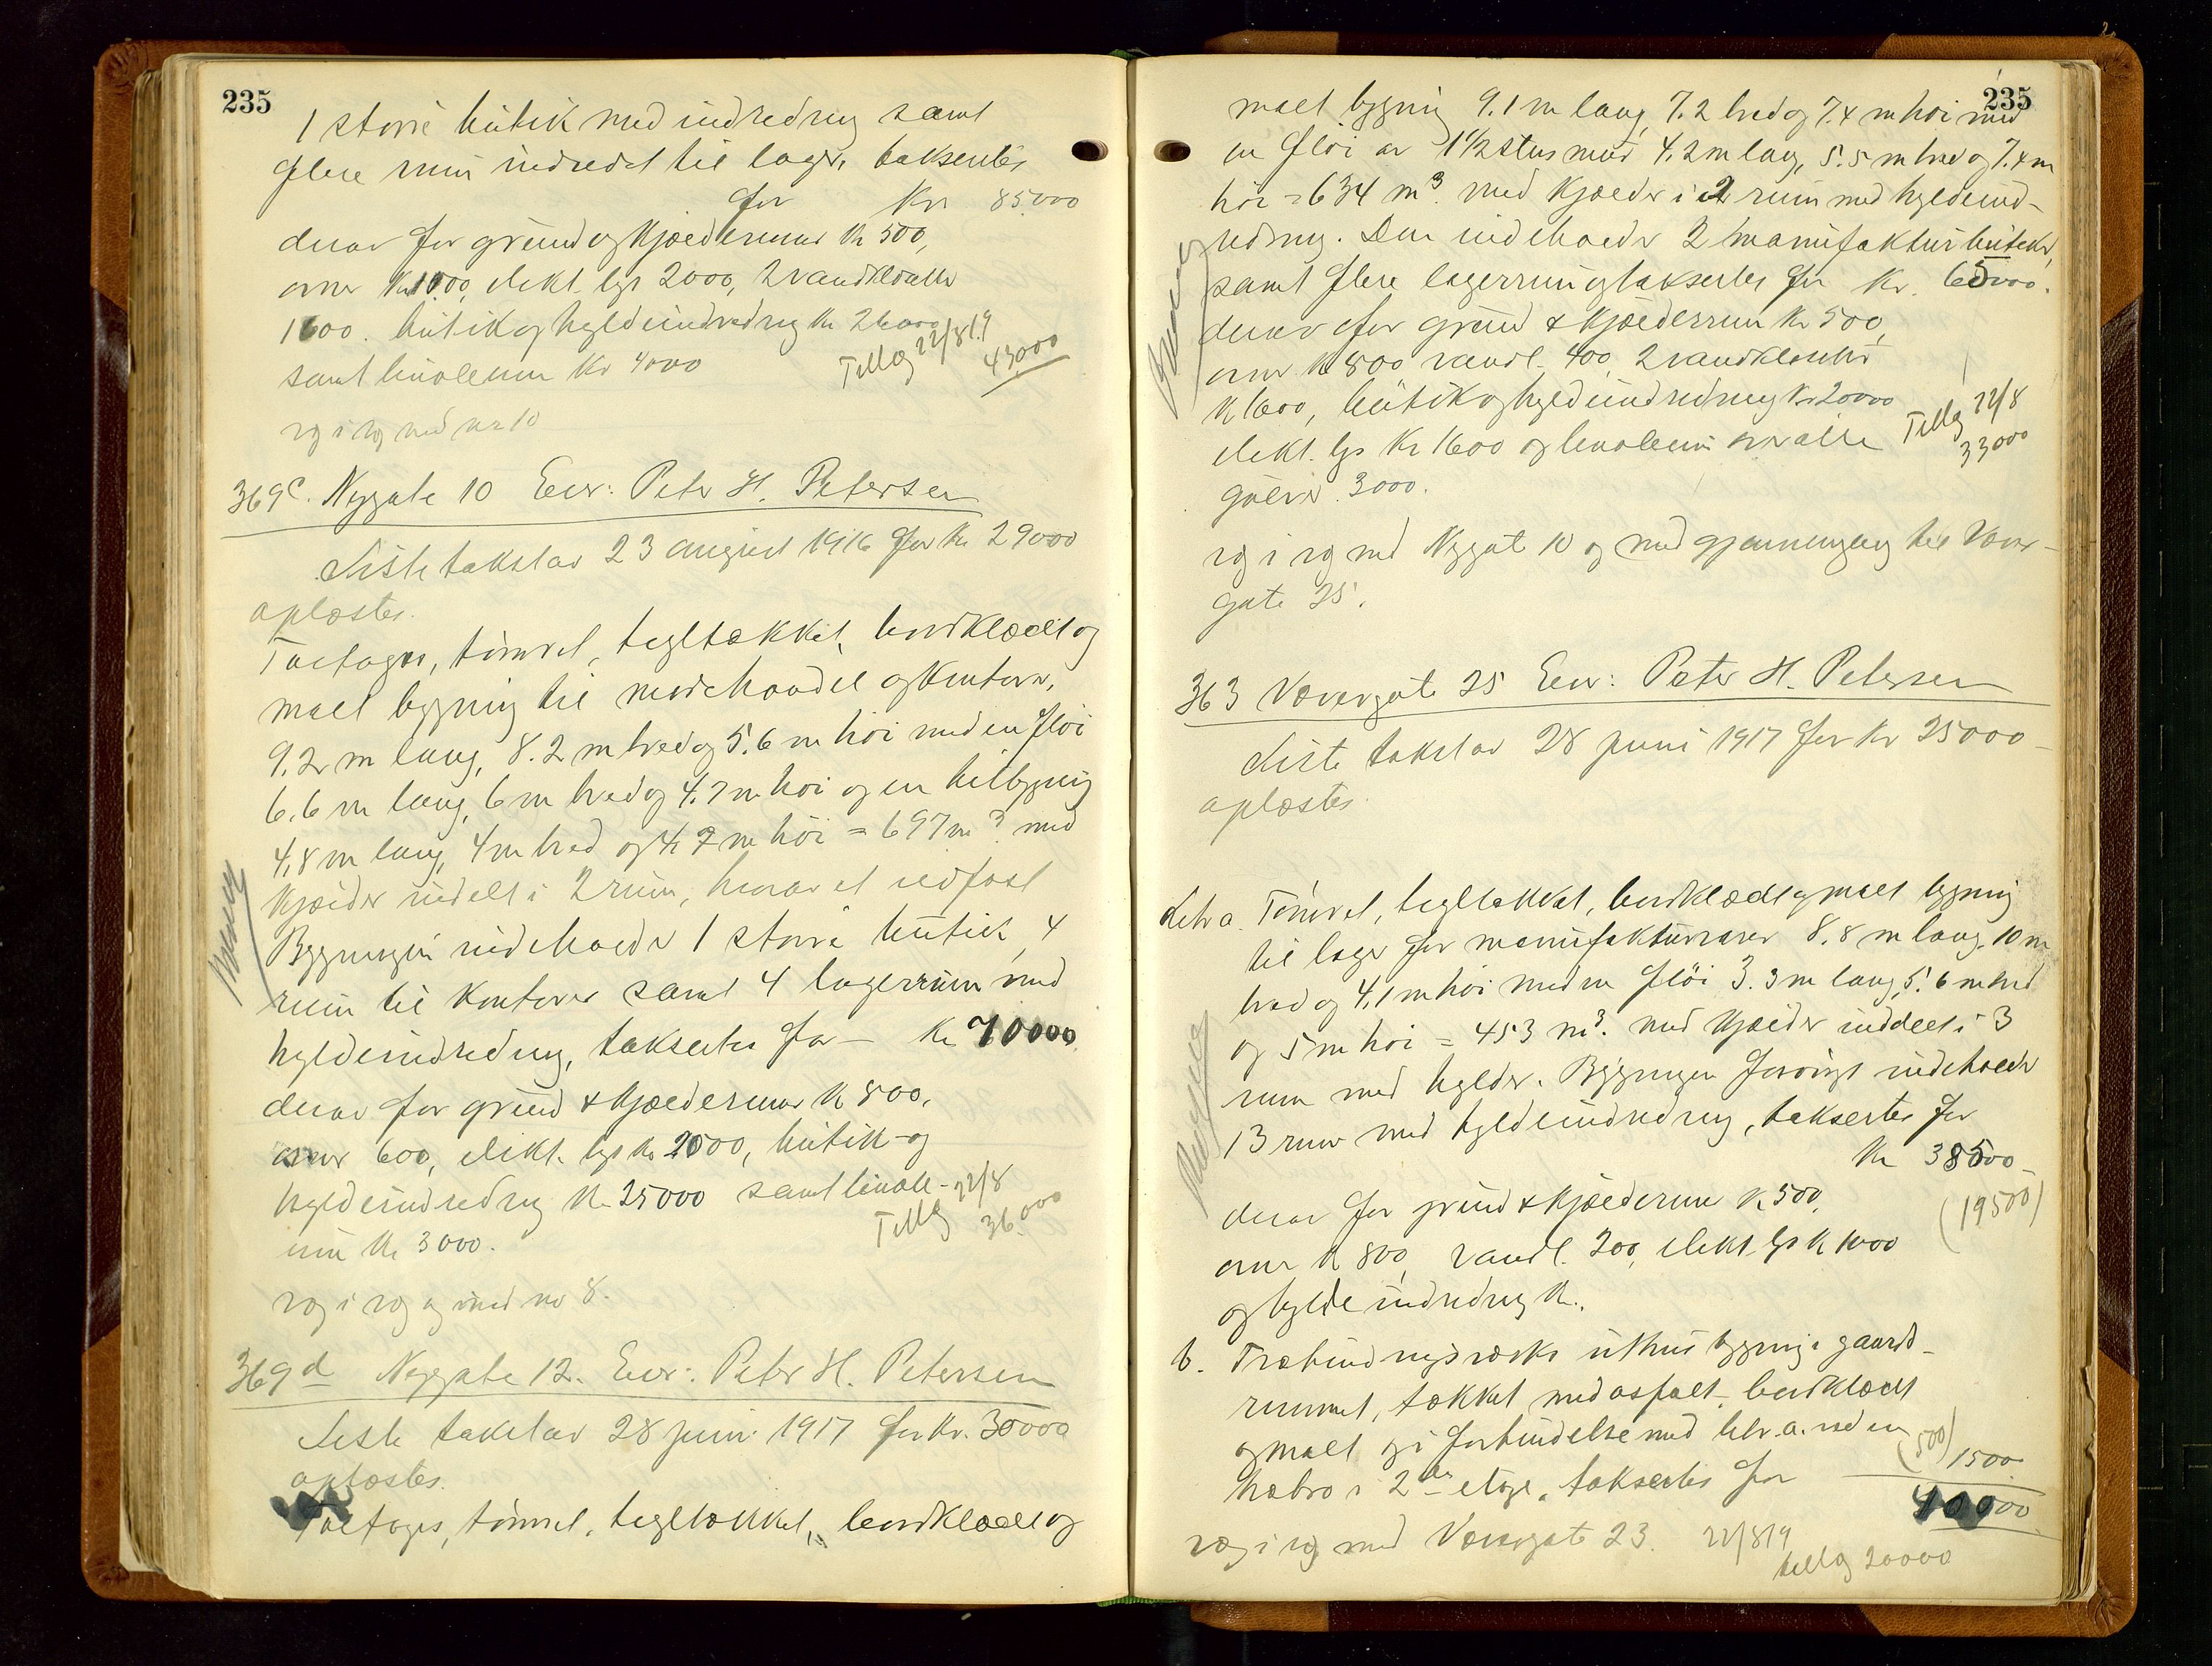 235
1 større butik med indredning samt
flere rum indredet til lager, takseres
for Kr 85000
derav for grund og kjælderrum Kr 500,
ovner Kr 1000, elekt. lys 2000, 2 vandkloseter
1600. butik og hyldeindredning Kr 26000
samt linoleum Kr 4000
Tillæg 22/8 19
43000
væg i væg med nr 10
369c. Nygate 10 Eier: Peter H. Petersen
Siste takst av 23 august 1916 for Kr 29000
oplæstes.
Toetages, tømret, tegltækket, bordklædt og
malt bygning til modehandel og kontorer,
9.2 m lang, 8.2 m bred og 5.6 m høi med en fløi
6.6 m lang, 6 m bred og 4.7 m høi og en tilbygning
4.8 m lang, 4 m bred og 4.7 m høi = 697 m3 med
kjælder inddelt i 2 rum, hvorav et ildfast
Bygningen indeholder 1 større butik, 4
rum til kontorer samt 4 lagerrum med
hyldeindredning, takseres for Kr 70000
derav for grund & kjælderrum Kr 500,
ovner 600, elekt. lys Kr 2000, butik- og
hyldeindredning Kr 25000 samt linole-
um Kr 3000.
Tillæg 22/8
36000
væg i væg med nr 8.
369d Nygate 12. Eier: Peter H. Petersen
Siste takst av 28 juni 1917 for Kr. 30000
oplæstes.
Toetages, tømret, tegltækket, bordklædt og
235
malt bygning 9.1 m lang, 7.2 bred og 7.4 m høi med
en fløi av 1 1/2 etus mur 4.2 m lang, 5.5 m bred og 7.4 m
høi = 634 m3. med kjælder i 2 rum med hyldeind-
redning. Den indeholder 2 manufakturbutiker,
samt flere lagerrum og takseres for Kr. 65000.
derav for grund & kjælderrum Kr 500,
ovner Kr 800 vandl. 400, 2 vandkloseter
Kr 1600, butik og hyldeindredning Kr 20000
elekt. lys Kr 1600 og linoleum på alle
gulver 3000.
Tillæg 22/8
33000
væg i væg med Nygate 10 og med gjennemgang til Vaver-
gate 25.
363 Vævergate 25 Eier: Peter H. Petersen
Siste takst av 28 juni 1917 for Kr 25000
oplæstes.
Litr a. Tømret, tegltækket, bordklædt og malt bygning
til lager for manufakturvarer 8.8 m lang, 10 m
bred og 4.1 m høi med en fløi 3.3 m lang, 5.6 m bred
og 5 m høi = 453 m3. med kjælder inddelt i 3
rum med hylder. Bygningen forøvrigt indeholder
13 rum med hyldeindredning, takseres for
Kr 38500
(19500)
derav for grund & kjælderrum Kr 500,
ovner Kr 800, vandl. 200, elekt. lys Kr 1000
og hyldeindredning Kr.
b. Træbindingsverks uthusbygning i gaards-
rummet, tækket med asfalt, bordklædt
og malt og i forbindelse med litr. a. ved en
træbro i 2den etage, takseres for
(500) 1500
40000
væg i væg med Vævergate 23.
22/8 19
tillæg 20000